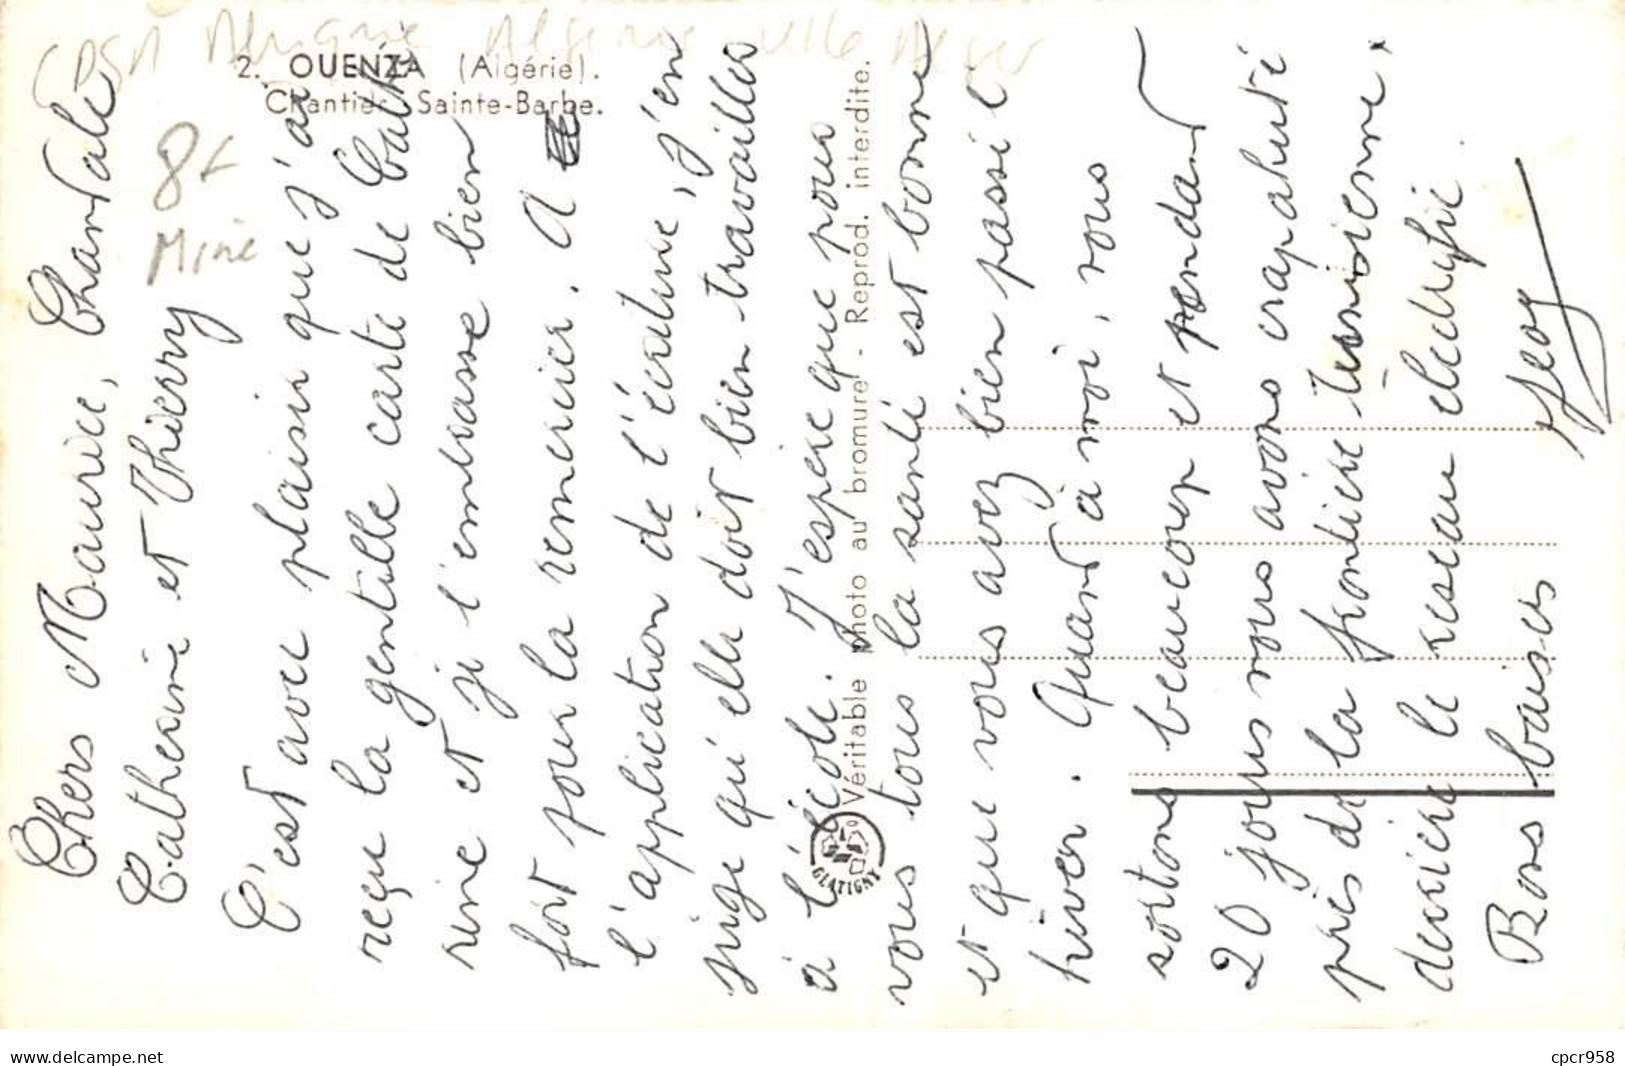 CPSM Afrique Algérie
2. OUENZA (Algérie).
Chantier Sainte-Barbe.
8€
Mine
Chers Maurice, Chantale
Catherine et Thierry
C'est avec plaisir que j'ai
reçu la gentille carte de Cathe
rine et je l'embrasse bien
fort pour la remercier. A
l'application de l'écriture, j'en
juge qu'elle doit bien travailler
à l'école. J'espère que pour
vous tous la santé est bonne
et que vous avez bien passé l'
hiver. Quand à moi, nous
sortons beaucoup et pendant
20 jours nous avons crapahuté
près de la frontière tunisienne,
derrière le réseau electrifié.
Bons baisers Geoy
Véritable photo au bromure - Reprod. interdite.
GLATIGNY
www.delcampe.net
cpcr958